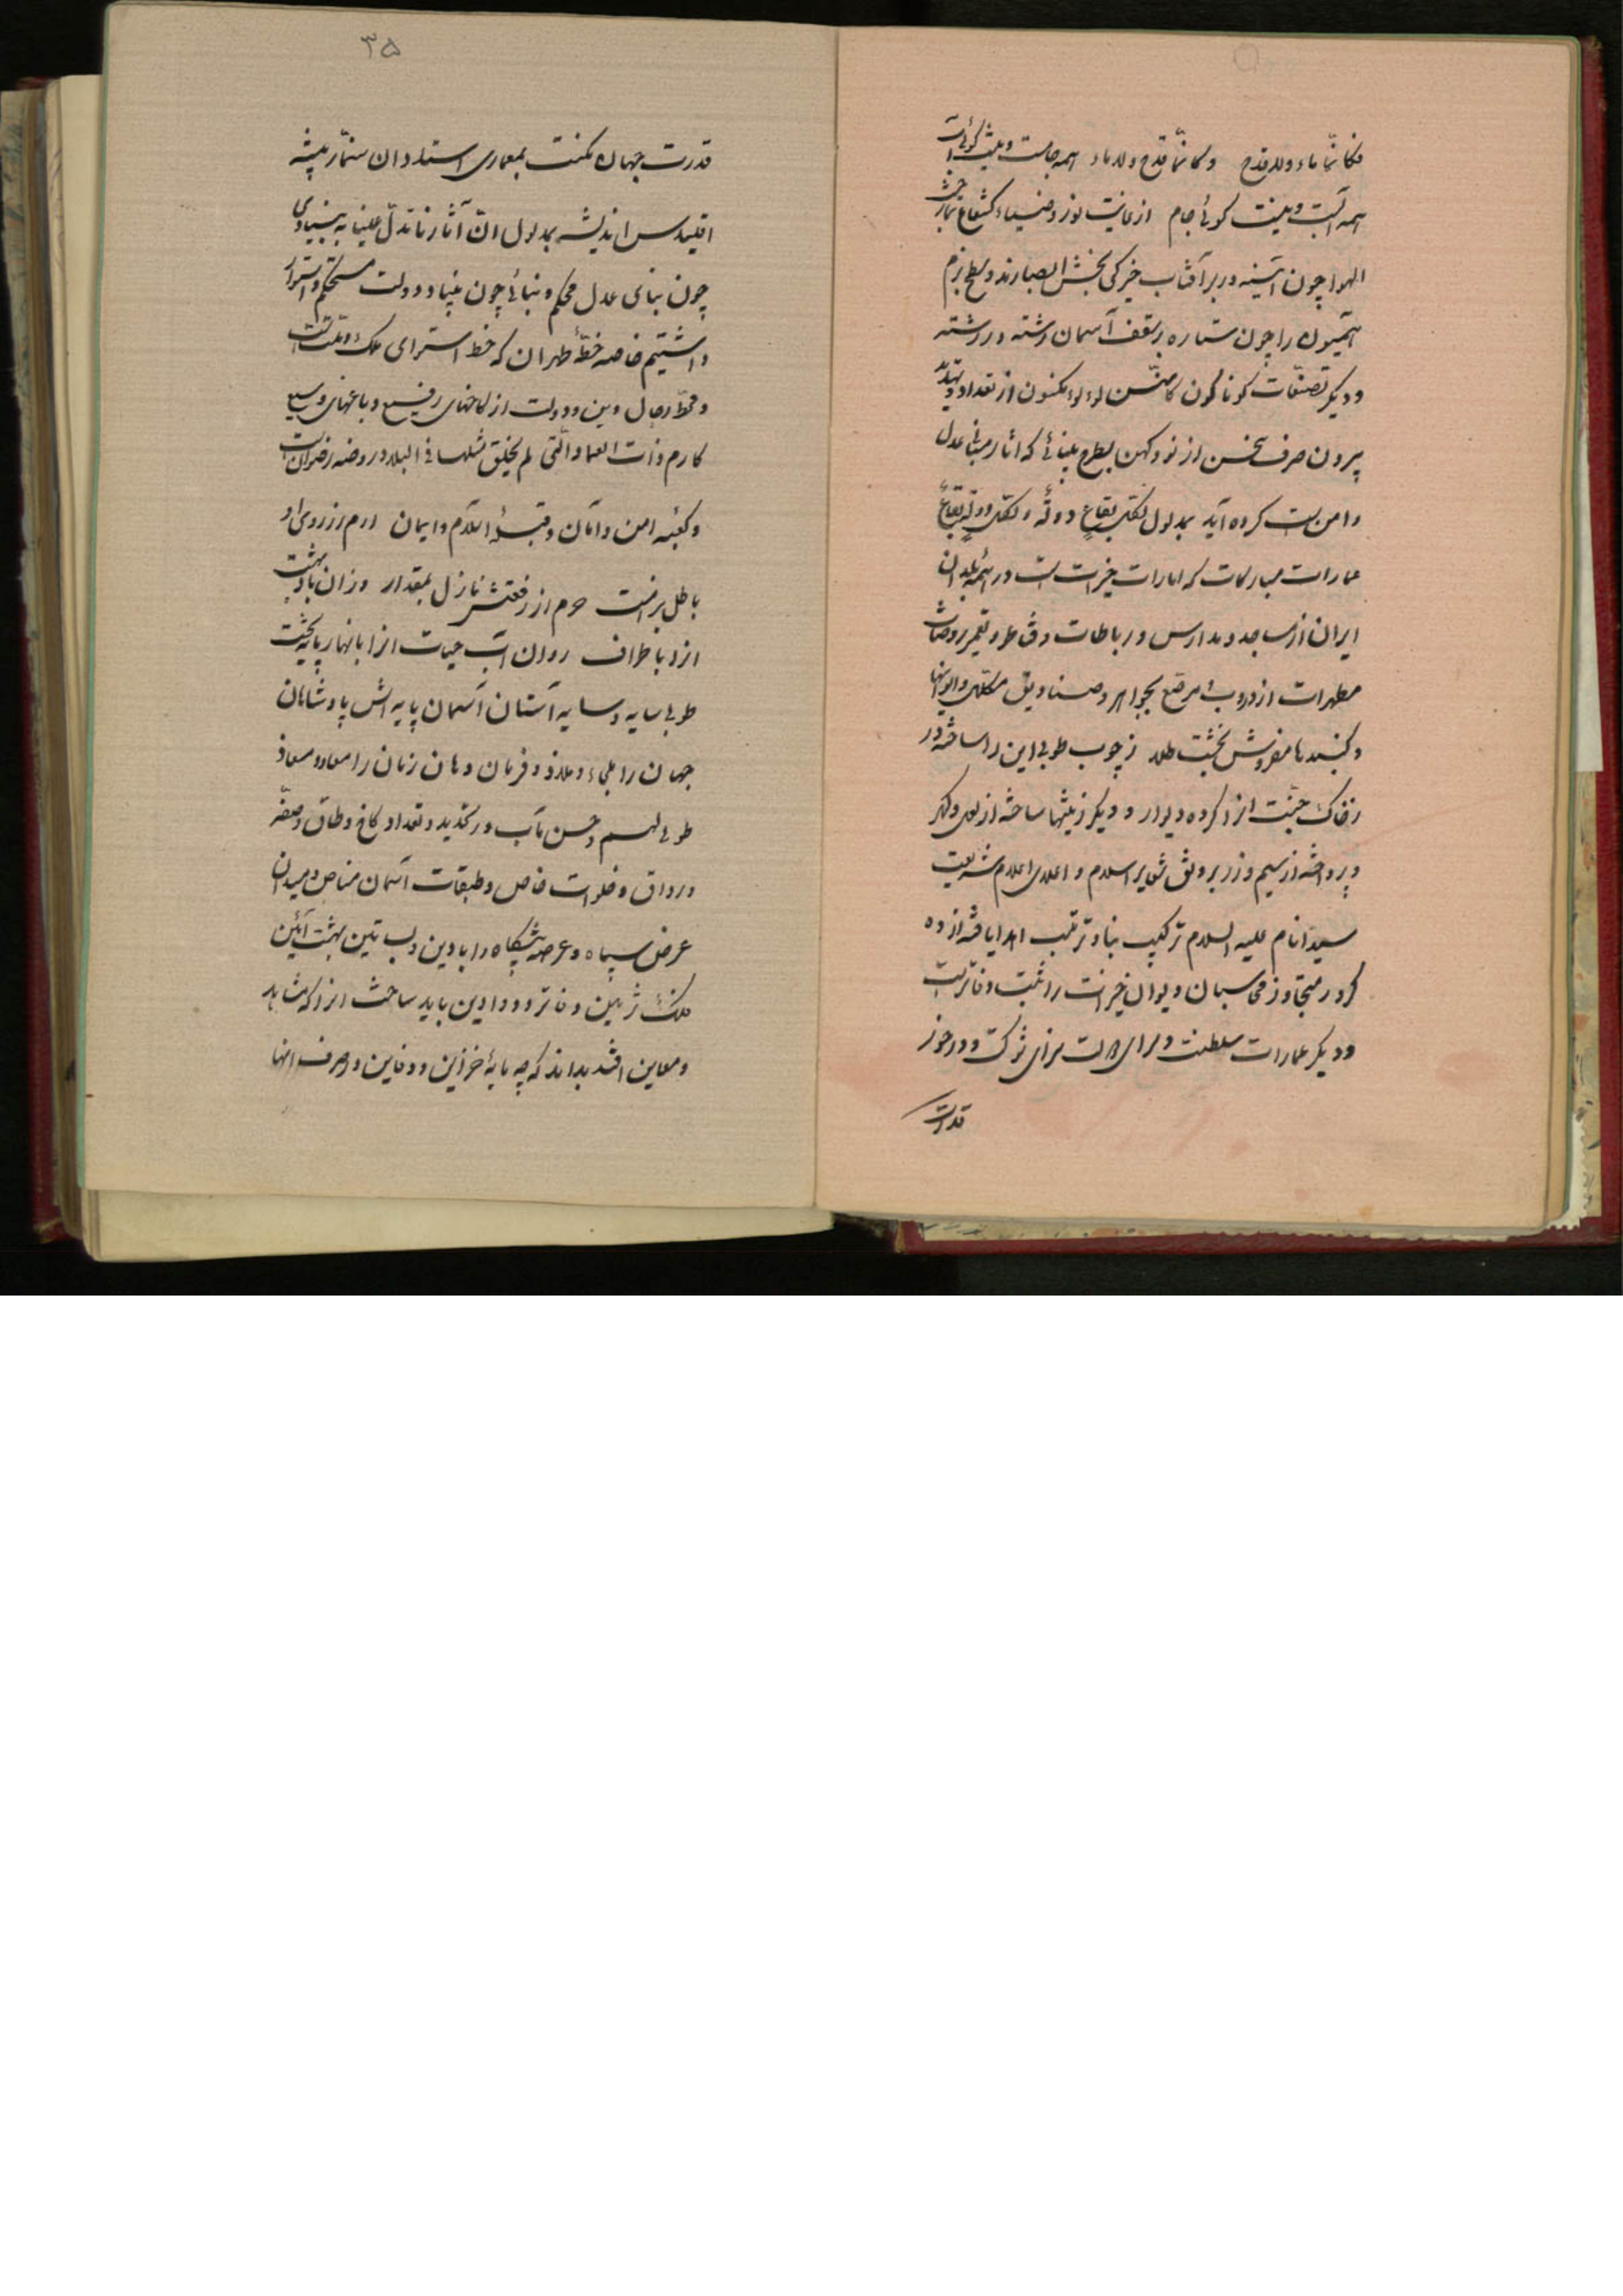 فکانّما ماء ولا قدح وکانّما قدح ولا ماء همه جامست و نیست گوئی آب
همه آبست و نیست گوئی جام از غایت نور و ضیاء کشعاع
الهوا چون آینه در برابر آفتاب خیرگی بخش ابصارند و سطح بزم
همیون را چون ستاره بر سقف آسمان رشته در رشته
و دیگر تصنّعات گوناگون کامثال لؤلؤ مکنون از تعداد و تهدید
بیرون صرف سخن از نو و کهن بطرح بنیائی که آثار مبانی عدل
و امن ست کرده آید بمدلول لکل بقاع دولة و لکل دولة بقاع
عمارات مبارکات که امارات خیرات است در همه بلدان
ایران از مساجد و مدارس و رباطات و قناطر و تعمیر روضات
مطهرات از دروب مرصّع بجواهر و صنادیق مکلّل و ایوانها
و گنبدها مفروش بخشت طلا ز چوب طوبی این را ساخته در
ز خاک جنّت انرا کرده دیوار و دیگر زینتها ساخته از لعل و گهر
و پرداخته از سیم و زر بر وفق شعایر اسلام و اعلای اعلام شریعت
سید انام علیه السلام ترکیب بنا و ترتیب اهدا یافته از ده
کرور متجاوز محاسبان دیوان خیرات را ثبت دفاتر است
و دیگر عمارات سلطنت و سرای سزای شوکت و در خور
قدرت
۳۵
قدرت جهان مکنت بمعماری استادان سنمّار پیشه
اقلیدس اندیشه بمدلول انّ آثارنا تدلّ علینا به بنیادی
چون بنای عدل محکم و بنائی چون بنیاد دولت مستحکم و استوار
داشتیم خاصه خطّه طهران که خط استوای ملک و ملت است
و محطّ رجال دین و دولت از کاخهای رفیع و باغهای وسیع
کارم ذات العماد الّتی لم یخلق مثلها فی البلاد روضه رضوان است
و کعبه امن و امان و قبله اسلام و ایمان ارم زرروی او
باطل برامت حرم از رفعتش نازل بمقدار وزان باد بهشت
انرا باطراف روان آب حیات انرا بانهار پایه تختت
طوبی سایه و سایه آستان آسمان پایه اش پادشاهان
جهان را ملجاء و ملاذ و فرمان دهان زمان را معاد و معاذ
طوبی لهم و حسن مآب در تحدید و تعداد کاخ و طاق و صفّه
و رواق و خلوات خاص و طبقات آسمان مناص و میدان
عرض سپاه و عرصه پیشگاه را با دین و بساتین بهشت آئین
کلک ژ بین دفاتر و دواوین باید ساخت انرا که مشاهد
و معاین افتد بداند که چه مایه خزاین و دفاین در صرف انها